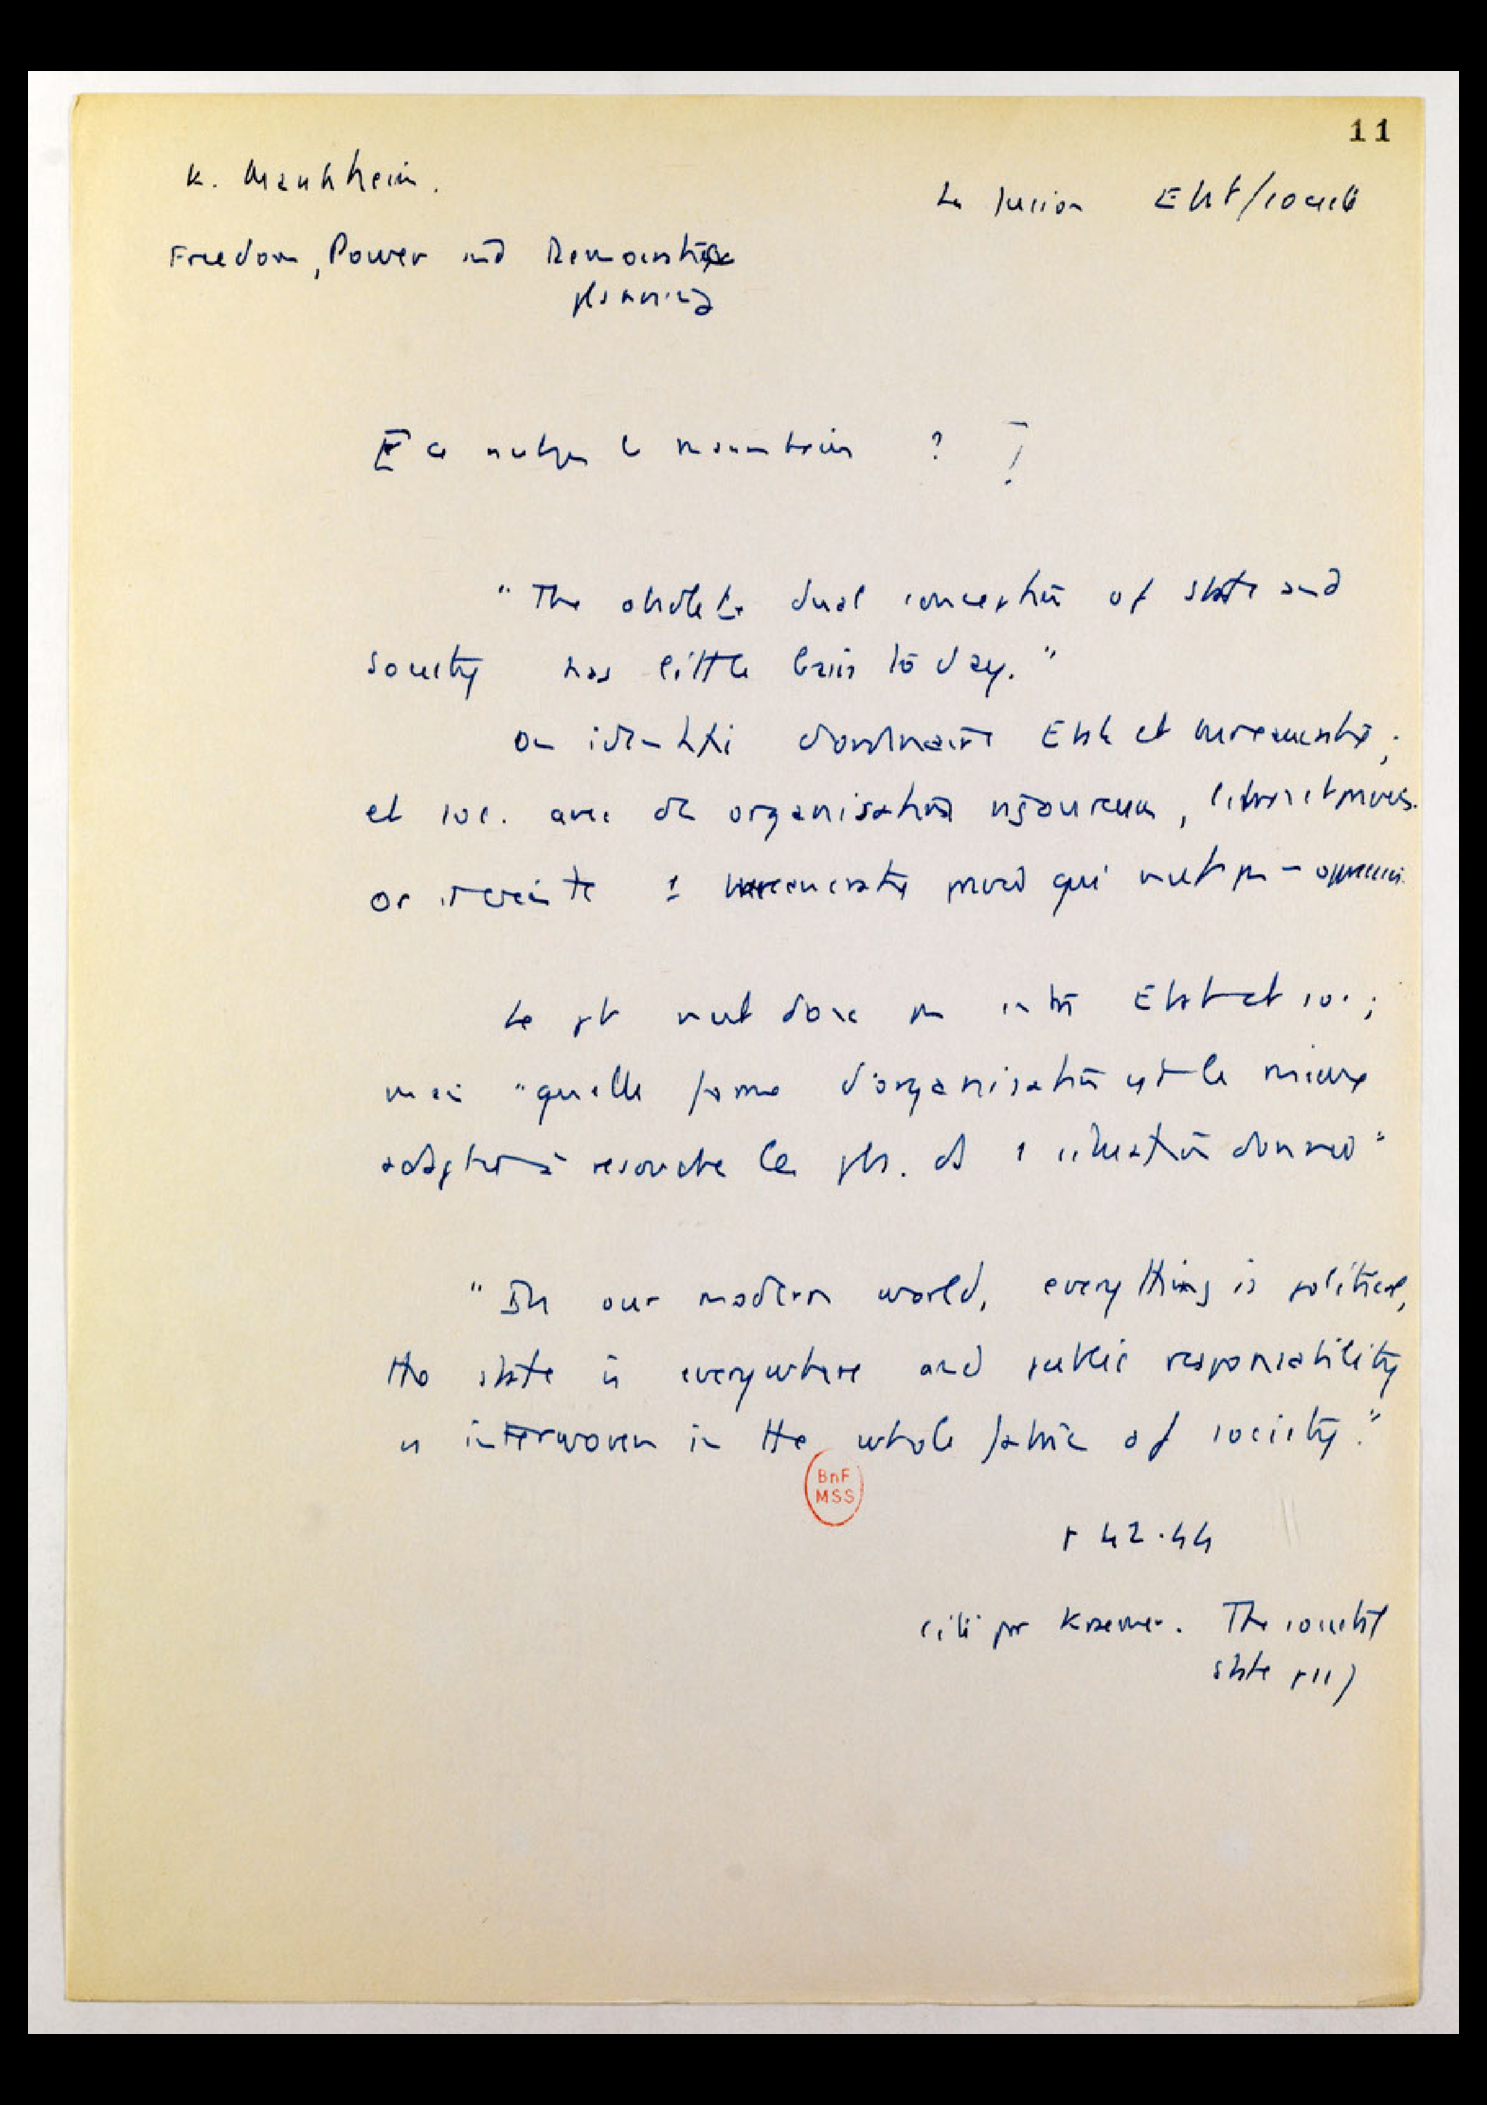 11
K. Mannheim.
La fusion Etat/société
Freedom, Power and Democratic
planning
Est ce nutzen le Mannheim ?
"The obsolete dual conception of state and
society has little basis to day."
On identifie d'ordinaire Etat et bureaucratie ;
et soc. avec des organisations vigoureuses, libres et priv.
or il existe 1 bureaucratie privée qui n'est pas - oppressiv.
Le pb n'est donc pas entre Etat et soc. ;
mais "quelle forme d'organisation est la mieux
adaptée à résoudre les pbs. ds 1 situation donnée"
"In our modern world, everything is political,
the state is everywhere and public responsability
is interwoven in the whole fabric of society."
BnF
MSS
p 42.44
cité par Kraemer. The societal
state p 117